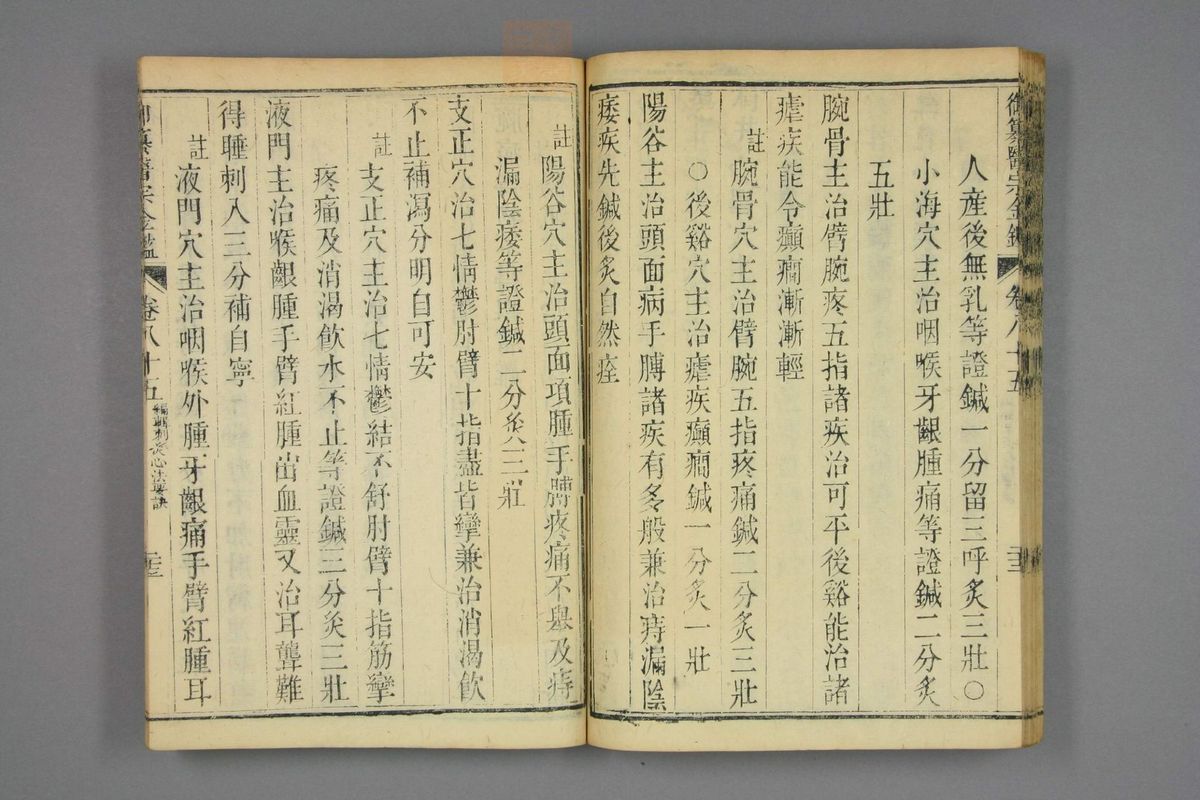 御纂醫宗金鑑 卷八十五
人產後無乳等證鍼一分留三呼炙三壯○
小海穴主治咽喉牙齦腫痛等證鍼二分炙
五壯
腕骨主治臂腕疼五指諸疾治可平後谿能治諸
瘧疾能令癲癇漸漸輕
註腕骨穴主治臂腕五指疼痛鍼二分炙三壯
○後谿穴主治瘧疾癲癇鍼一分炙一壯
陽谷主治頭面病手膊諸疾有多般兼治痔漏陰
痿疾先鍼後炙自然痊
註陽谷穴主治頭面項腫手膊疼痛不舉及痔
漏陰痿等證鍼二分炙三壯
支正穴治七情鬱肘臂十指盡皆攣兼治消渴飲
不止補瀉分明自可安
註支正穴主治七情鬱結不舒肘臂十指筋攣
疼痛及消渴飲水不止等證鍼三分炙三壯
液門主治喉齦腫手臂紅腫出血靈又治耳聾難
得睡刺入三分補自寧
註液門穴主治咽喉外腫牙齦痛手臂紅腫耳
御纂醫宗金鑑 卷八十五 編輯刺灸心法要訣